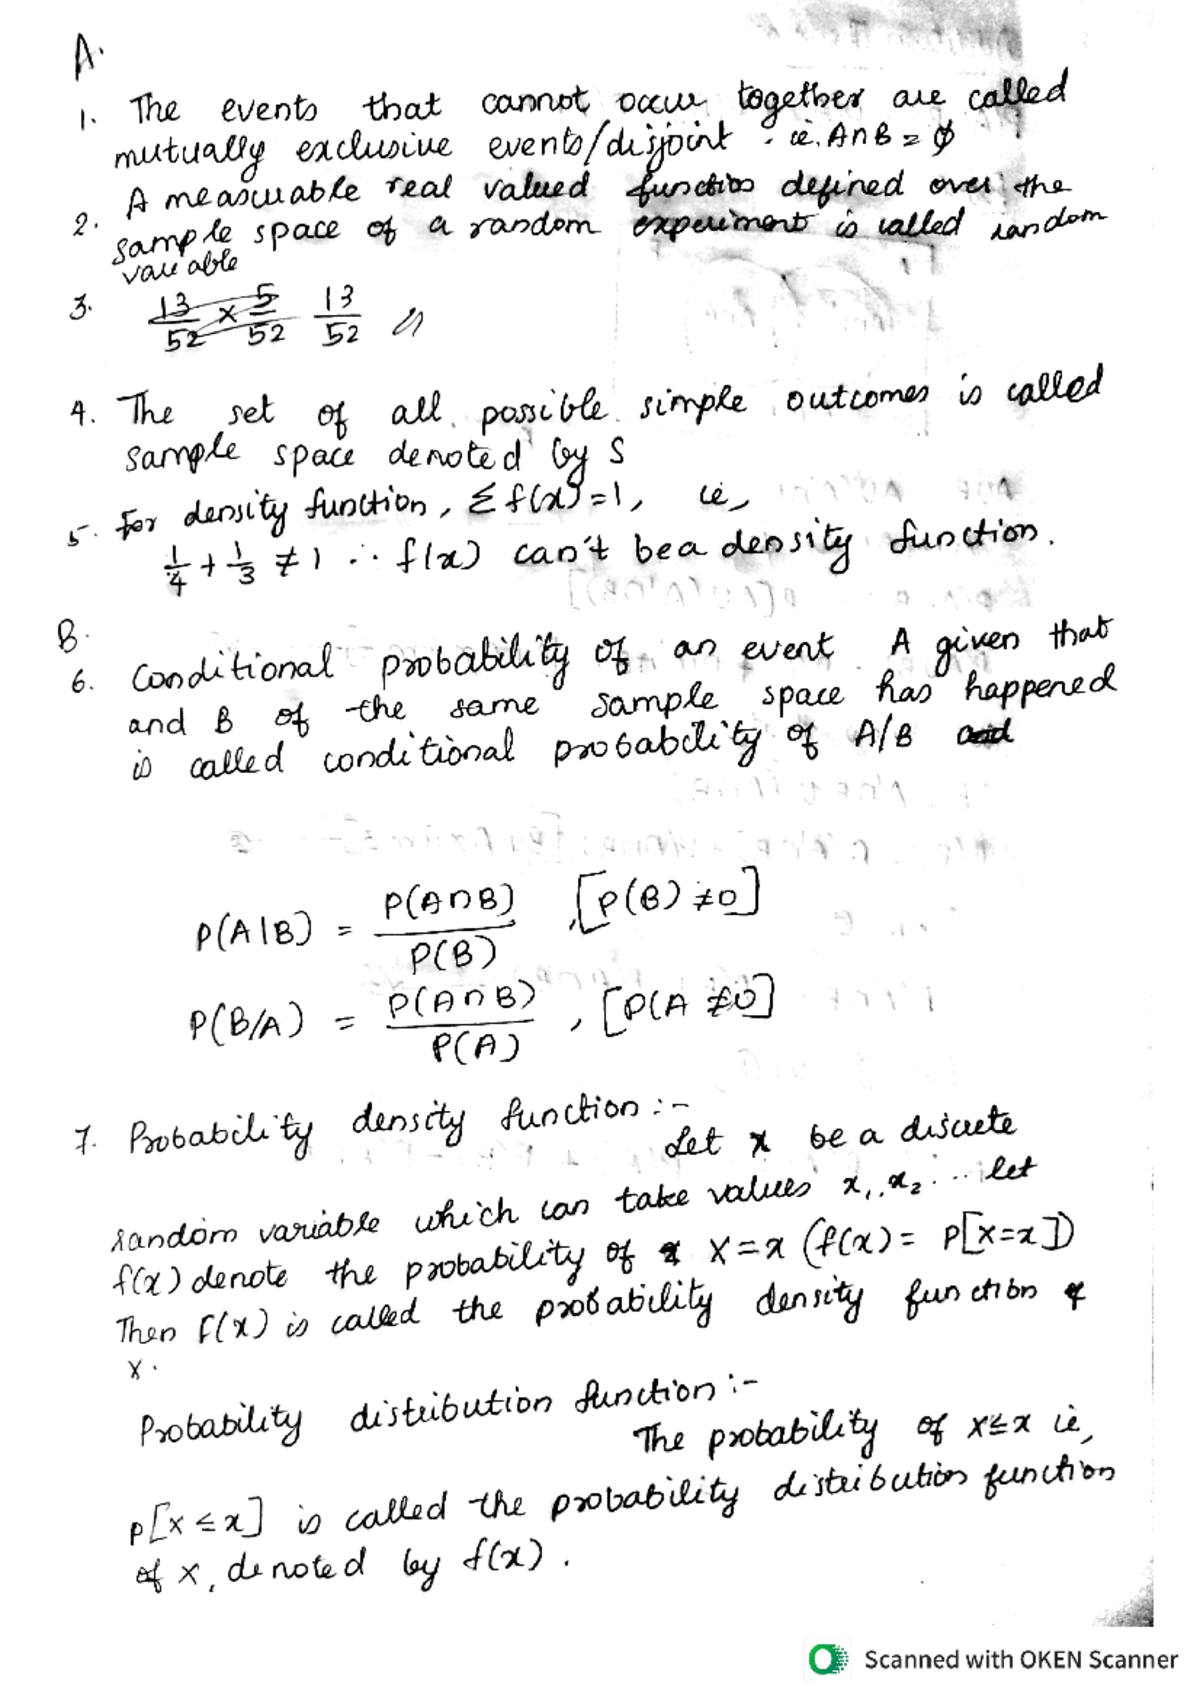 A.
1. The events that cannot occur together are called
mutually exclusive events/disjoint. ie. A∩B = ϕ
2. A measurable real valued function defined over the
sample space of a random experiment is called random
variable
3. 13/52 × 5/52 13/52 //
4. The set of all possible simple outcomes is called
sample space denoted by S
5. For density function, Σ f(x) = 1, ie,
1/4 + 1/3 ≠ 1 ∴ f(x) can't be a density function.
B.
6. Conditional probability of an event A given that
and B of the same sample space has happened
is called conditional probability of A/B and
P(A|B) = P(A∩B)/P(B) , [P(B) ≠ 0]
P(B/A) = P(A∩B)/P(A) , [P(A ≠ 0]
7. Probability density function :-
Let x be a discrete
random variable which can take values x1, x2 ... let
f(x) denote the probability of X = x (f(x) = P[X=x])
Then f(x) is called the probability density function of
X.
Probability distribution function :-
The probability of X ≤ x ie,
P[X ≤ x] is called the probability distribution function
of X, denoted by f(x).
Scanned with OKEN Scanner